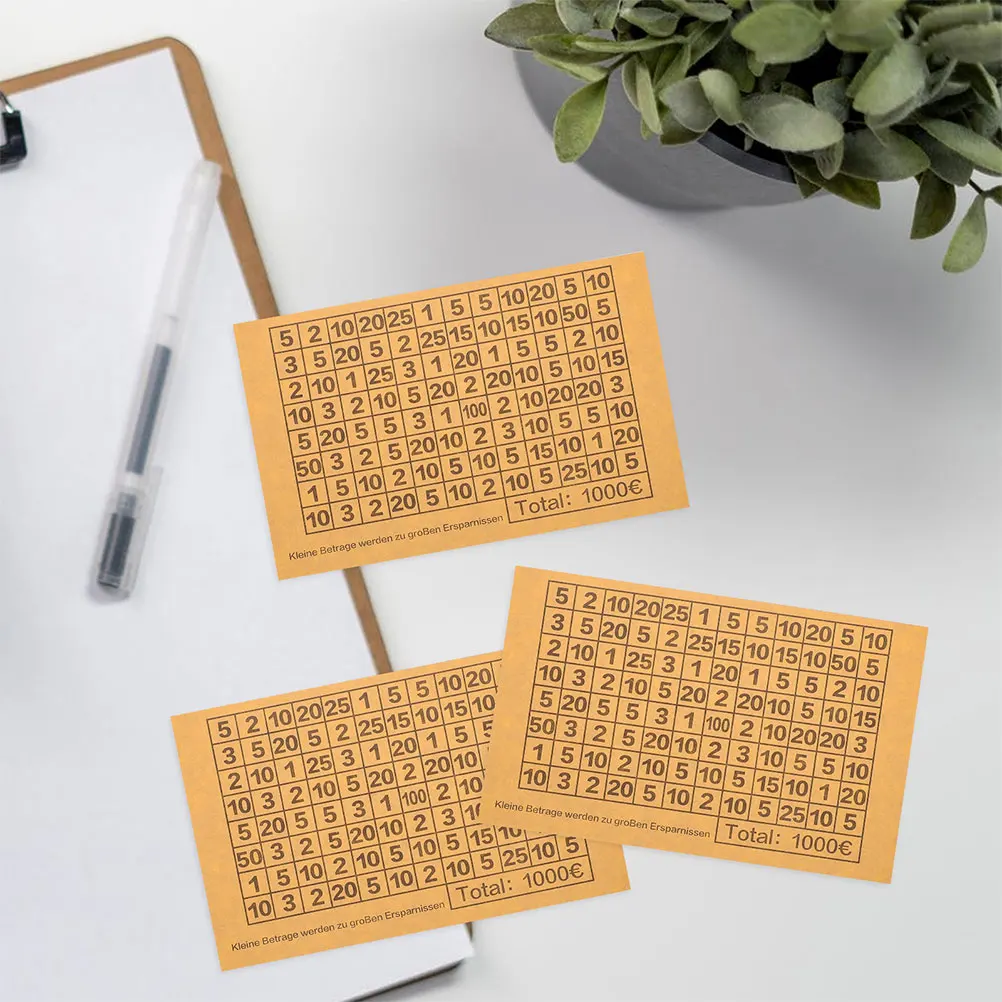 5 2 10 20 25 1 5 5 10 20 5 10
3 5 20 5 2 25 15 10 15 10 50 5
2 10 1 25 3 1 20 1 5 5 2 10
10 3 2 10 5 20 2 20 10 5 10 15
5 20 5 5 3 1 100 2 10 20 20 3
50 3 2 5 20 10 2 3 10 5 5 10
1 5 10 2 10 5 10 5 15 10 1 20
10 3 2 20 5 10 2 10 5 25 10 5
Kleine Betrage werden zu groBen Ersparnissen
Total: 1000€
5 2 10 20 25 1 5 5 10 20 5 10
3 5 20 5 2 25 15 10 15 10 50 5
2 10 1 25 3 1 20 1 5 5 2 10
10 3 2 10 5 20 2 20 10 5 10 15
5 20 5 5 3 1 100 2 10 20 20 3
50 3 2 5 20 10 2 3 10 5 5 10
1 5 10 2 10 5 10 5 15 10 1 20
10 3 2 20 5 10 2 10 5 25 10 5
Kleine Betrage werden zu groBen Ersparnissen
Total: 1000€
5 2 10 20 25 1 5 5 10 20
3 5 20 5 2 25 15 10 15 10
2 10 1 25 3 1 20 1 5 5
10 3 2 10 5 20 2 20 10
5 20 5 5 3 1 100 2 10
50 3 2 5 20 10 2 3
1 5 10 2 10 5 10 5
10 3 2 20 5 10 2 10 5 25 10 5
Kleine Betrage werden zu groBen Ersparnissen
Total: 1000€